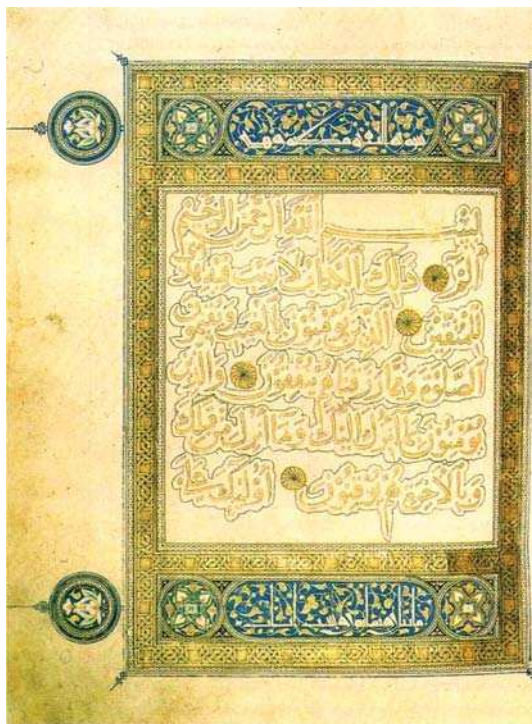 بِسْمِ اللَّهِ الرَّحْمَنِ الرَّحِيمِ
الم ذلك الكتاب لا ريب فيه هدى
للمتقين الذين يؤمنون بالغيب ويقيمون
الصلوة ومما رزقناهم ينفقون والذين
يؤمنون بما أنزل إليك وما أنزل من قبلك
وبالآخرة هم يوقنون أولئك على